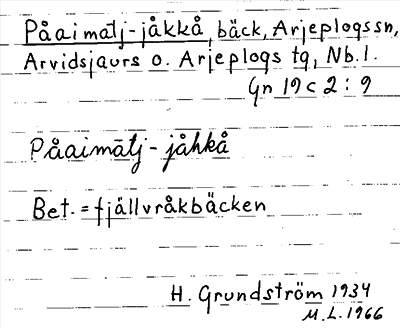 Påaimatj-jåkkå, bäck, Arjeplogs sn,
Arvidsjaurs o. Arjeplogs tg, Nb. l.
Gn 19 c 2 : 9
Påaimātj - jåhkå
Bet. = fjällvråkbäcken
H. Grundström 1934
M.L. 1966